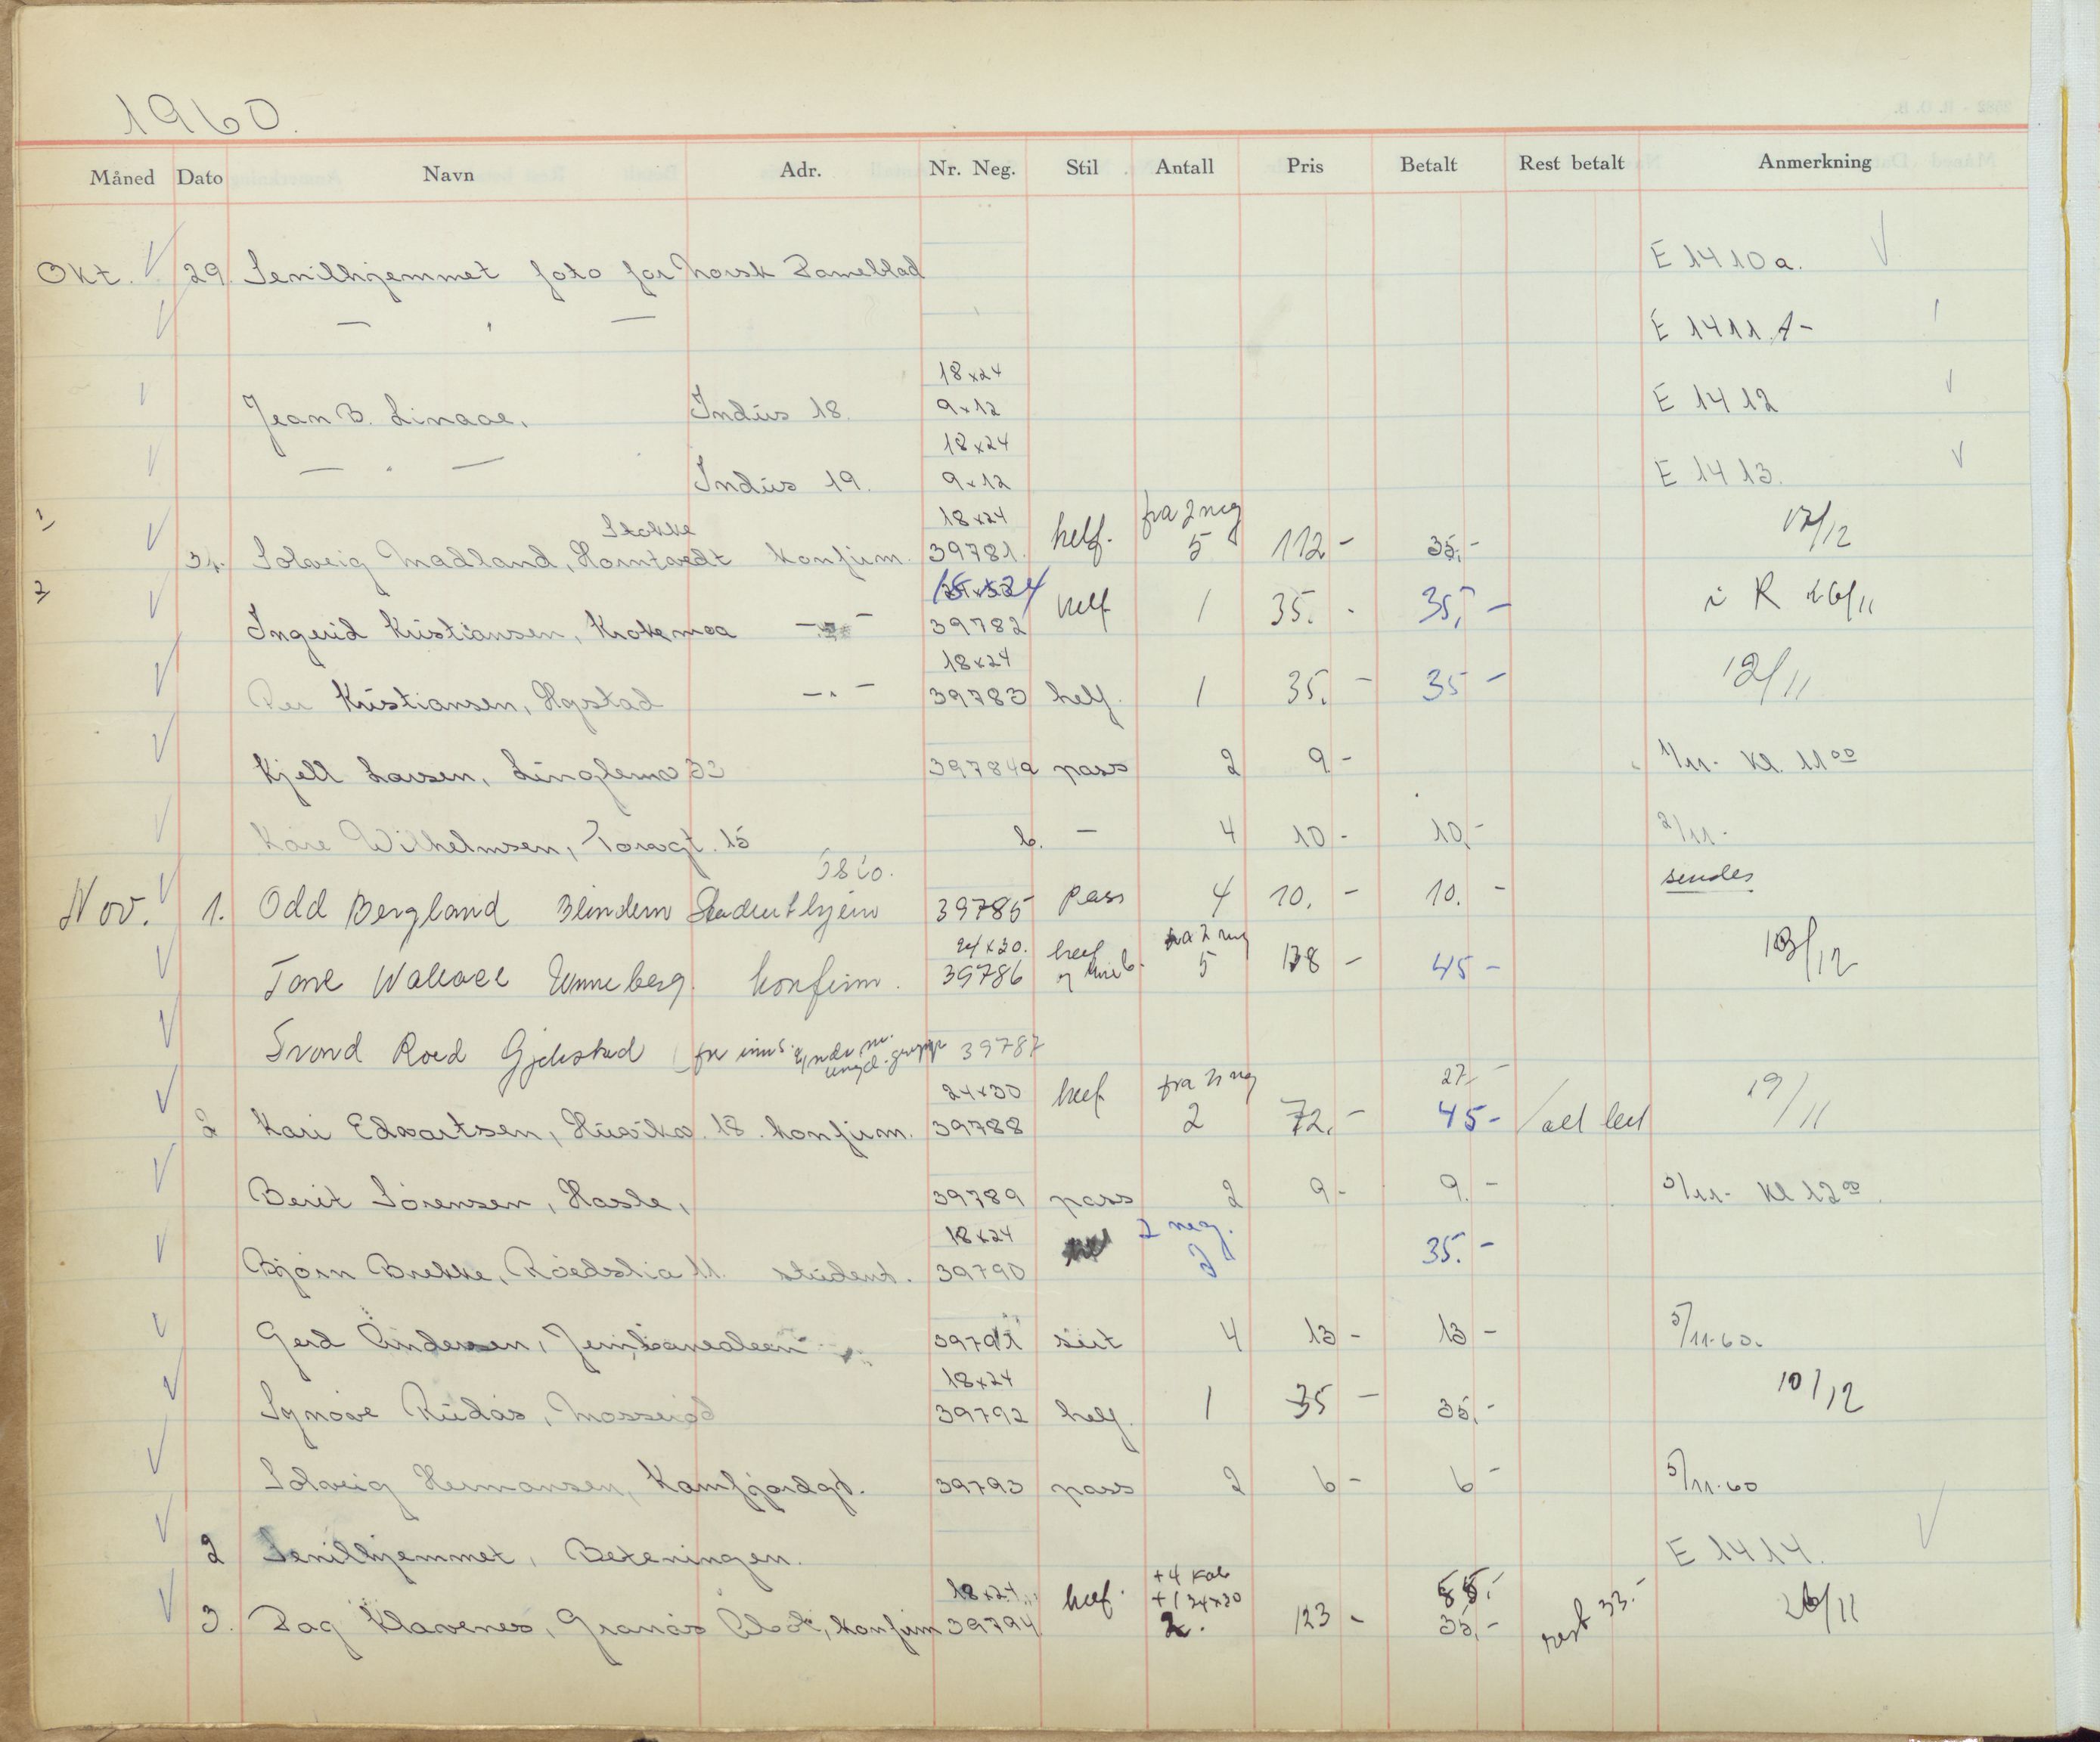 1960.
Måned Dato Navn Adr. Nr. Neg. Stil Antall Pris Betalt Rest betalt Anmerkning
Okt. 29. Senilhjemmet foto for Norsk Dameblad E 1410a.
— " — E 1411 A-
18x24
Jean B. Linaae, Indus 18. 9x12 E 1412
18x24
— " — Indus 19. 9x12 E 1413.
1) Stokke 18x24 fra 2 neg
31. Solveig Madland, Horntvedt konfirm. 39781. helf. 5 112 - 35,- 17/12
2) 18x24
Ingerid Kristiansen, Krokemoa — " — 39782 helf 1 35. - 35,- i R 26/11
18x24
Per Kristiansen, Hystad — " — 39783 helf. 1 35. - 35 - 12/11
Kjell Larsen, Lingelemo 33 39784a pass 2 9 - 1/11. Kl. 11 00
Kåre Wilhelmsen, Torvgt. 15 b. — 4 10 - 10,- 2/11.
Oslo.
Nov. 1. Odd Bergland Blindern Studenthjem 39785 pass 4 10. - 10. - sendes
24x30. helf fra 2 neg
Tone Wallace Unneberg. konfirm. 39786 5 138 - 45 - 13/12
Trond Roed Gjekstad 39787
24x30 helf 27,-
2 Kari Edvartsen, 18. konfirm. 39788 2 72. - 45 - 19/11
Berit Sørensen, Hasle, 39789 pass 2 9 - 9. - 3/11. Kl 12 00.
18x24 2 neg.
Bjørn Brekke, Roedslia 11. student. 39790 2 35. -
Gerd Andersen, Jernbanealeen 39791 seit 4 13 - 13 - 5/11.60.
18x24
Synøve Rudås, Mosserød 39792 helf. 1 35 - 35,- 10/12
Solveig Hermansen, Kamfjordgt. 39793 pass 2 6 - 6 - 5/11.60
2 Senilhjemmet, Beteningen. E 1414.
18x24 helf. +4 Kab
+1 24x30
3. Dag Klavenes, Granås konfirm 39794 2. 123 - 35,- rest 33.- 26/11